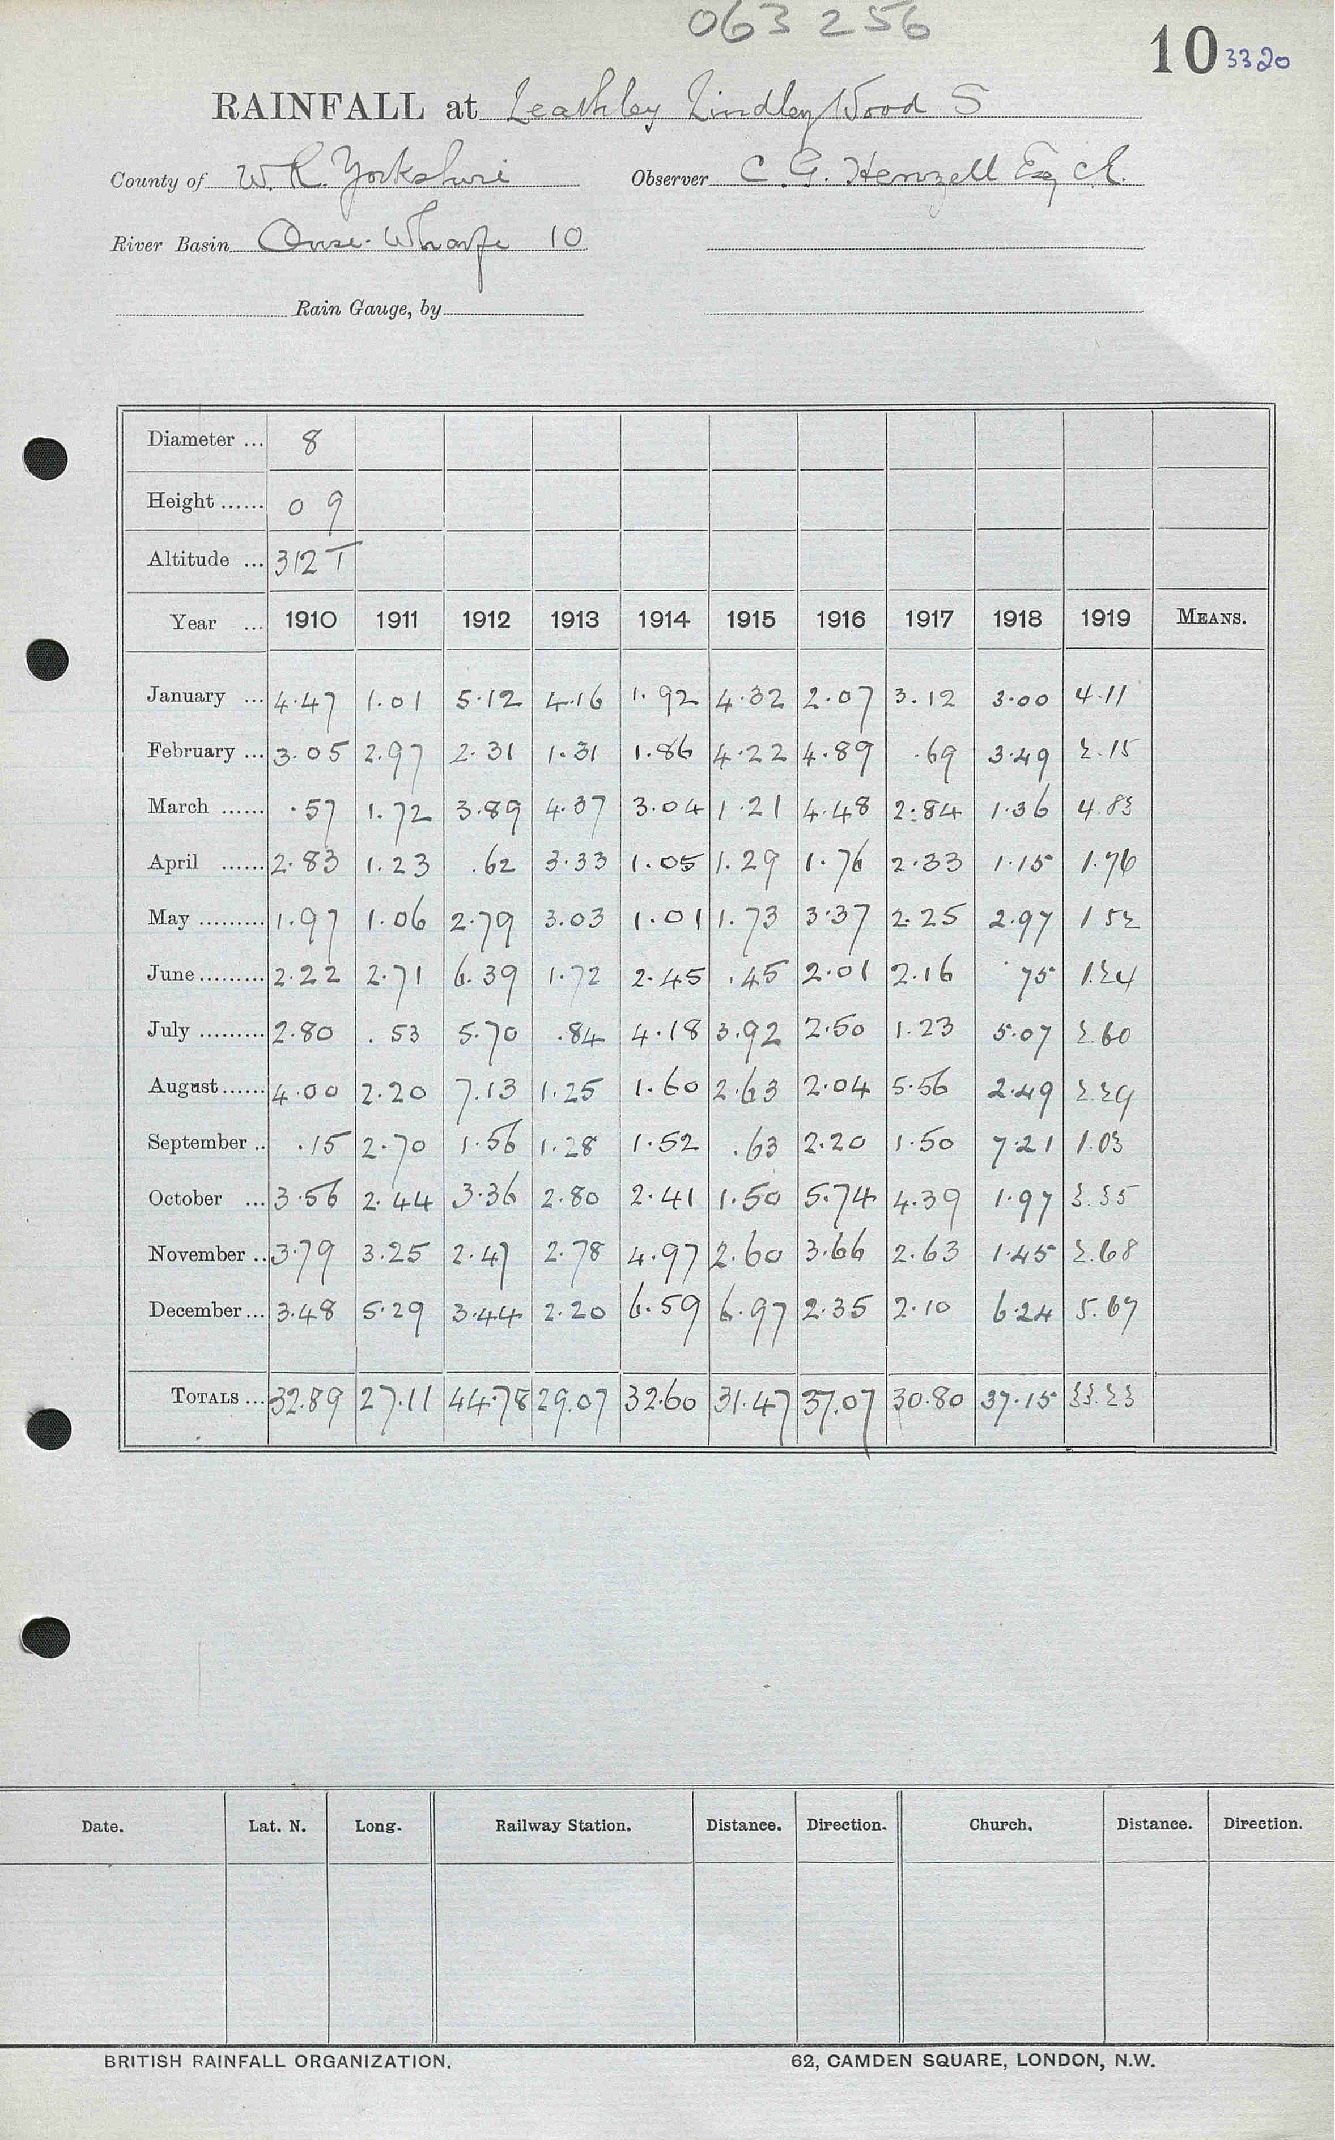 063256
10 3320
RAINFALL at Leathley Lindley Wood S
County of W. R. Yorkshire Observer C. G. Henzell Esq C.E.
River Basin Ouse-Wharfe 10
Rain Gauge, by
Diameter ... 8
Height ...... 0 9
Altitude ... 312 T
Year ... 1910 1911 1912 1913 1914 1915 1916 1917 1918 1919 MEANS.
January ... 4.47 1.01 5.12 4.16 1.92 4.32 2.07 3.12 3.00 4.11
February ... 3.05 2.97 2.31 1.31 1.86 4.22 4.89 .69 3.49 2.15
March ...... .57 1.72 3.89 4.37 3.04 1.21 4.48 2.84 1.36 4.83
April ...... 2.83 1.23 .62 3.33 1.05 1.29 1.76 2.33 1.15 1.76
May ......... 1.97 1.06 2.79 3.03 1.01 1.73 3.37 2.25 2.97 1.52
June ......... 2.22 2.71 6.39 1.72 2.45 .45 2.01 2.16 .75 1.24
July ......... 2.80 .53 5.70 .84 4.18 3.92 2.50 1.23 5.07 2.60
August ...... 4.00 2.20 7.13 1.25 1.60 2.63 2.04 5.56 2.49 2.29
September .. .15 2.70 1.56 1.28 1.52 .63 2.20 1.50 7.21 1.03
October ... 3.56 2.44 3.36 2.80 2.41 1.50 5.74 4.39 1.97 3.35
November .. 3.79 3.25 2.47 2.78 4.97 2.60 3.66 2.63 1.45 2.68
December ... 3.48 5.29 3.44 2.20 6.59 6.97 2.35 2.10 6.24 5.67
TOTALS ... 32.89 27.11 44.78 29.07 32.60 31.47 37.07 30.80 37.15 33.23
Date. Lat. N. Long. Railway Station. Distance. Direction. Church. Distance. Direction.
BRITISH RAINFALL ORGANIZATION. 62, CAMDEN SQUARE, LONDON, N.W.